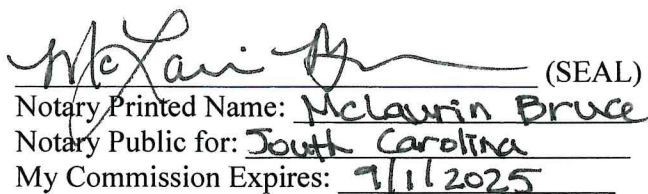 (SEAL)
Notary Printed Name: McLaurin Bruce
Notary Public for: South Carolina
My Commission Expires: 9/1/2025